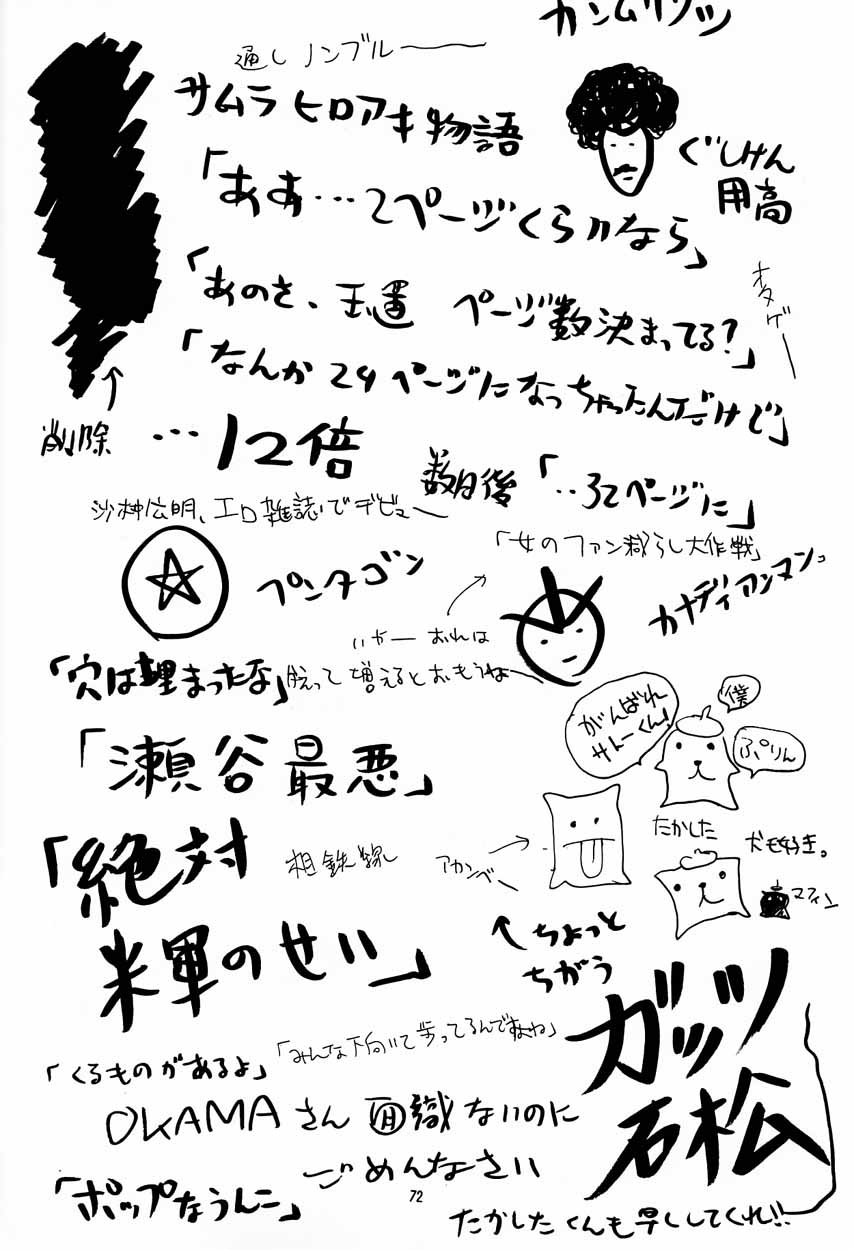 通しノンブルー
サムラヒロアキ物語
ぐしけん
用高
「ああ…2ページくらいなら」
「あのさ、玉置 ページ数決まってる?」
オタゲー
「なんか24ページになっちゃったんだけど」
削除
…12倍
数日後「‥32ページに」
沙村広明、エロ雑誌でデビュー
「女のファン減らし大作戦」
ペンタゴン
カナディアンマン。
いやー おれは
「穴は埋まったな」
脱って増えるとおもうね
がんばれ
サトーくん!
僕
ぷりん
「瀬谷最悪」
たかした
犬も好き。
「絶対
相鉄線
アカンベー
マフィン
米軍のせい」
←ちょっと
ちがう
ガッツ
石松
「みんな下向いて歩ってるんですよね」
「くるものがあるよ」
OKAMAさん 面識ないのに
ごめんなさい
「ポップなうんこ」
72
たかしたくんも早くしてくれ!!